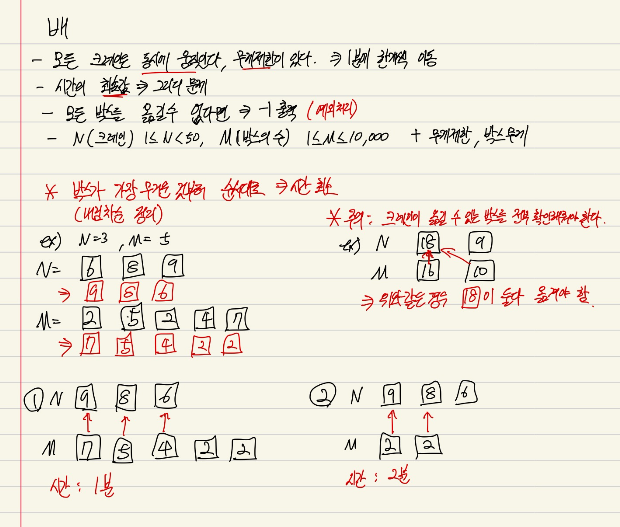 배
- 모든 크레인은 동시에 움직인다, 무게제한이 있다. ⇒ 1분에 한개씩 이동
- 시간의 최솟값 ⇒ 그리디 문제
- 모든 박스를 옮길수 없다면 ⇒ -1 출력 (예외처리)
- N(크레인) 1≤N<50, M(박스의 수) 1≤M≤10,000 + 무게제한, 박스무게
* 박스가 가장 무거운 것부터 순서대로 ⇒ 시간 최소
(내림차순 정리)
ex) N=3, M=5
N= 6 8 9
⇒ 9 8 6
M= 2 5 2 4 7
⇒ 7 5 4 2 2
* 주의: 크레인이 옮길 수 있는 박스를 전부 확인해줘야 한다.
ex) N 18 9
M 16 10
⇒ 위와같은 경우 18이 둘다 옮겨야 함.
① N 9 8 6
M 7 5 4 2 2
시간: 1분
② N 9 8 6
M 2 2
시간: 2분